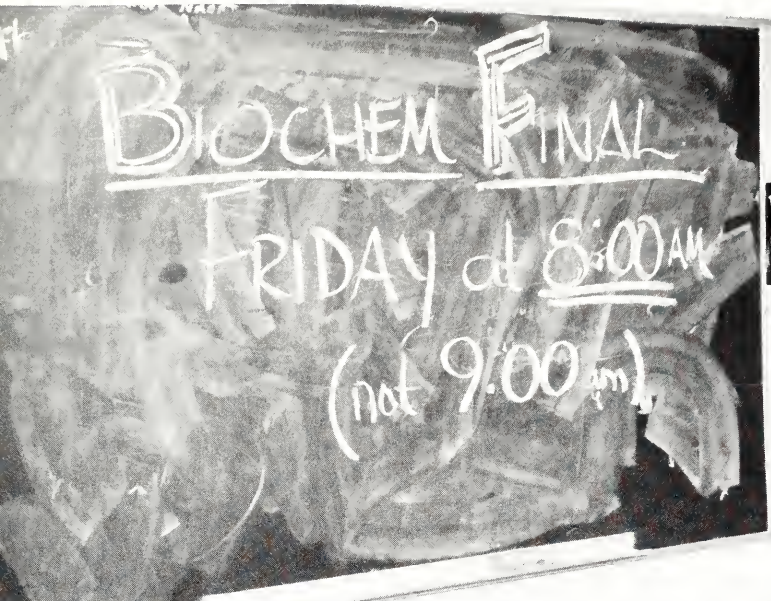 BIOCHEM FINAL
FRIDAY at 8:00 AM
(not 9:00 am)